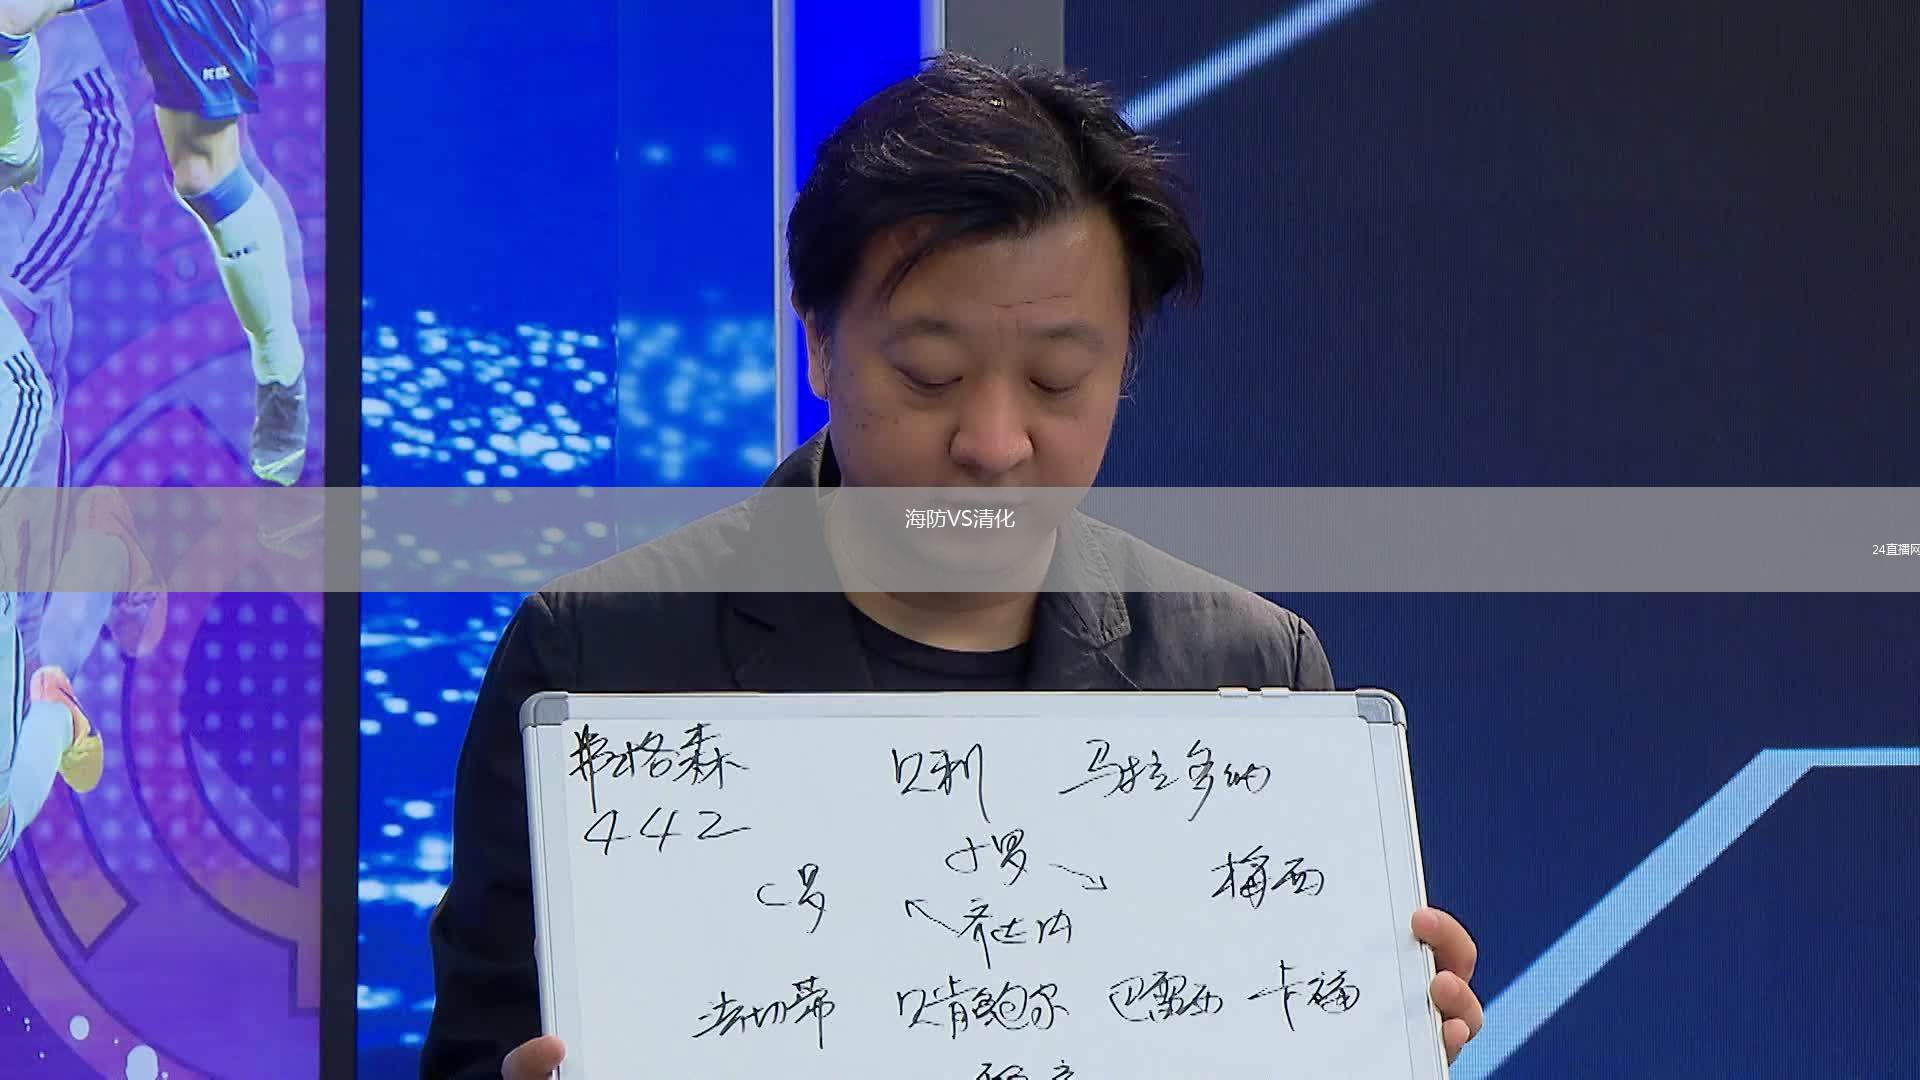 海防VS清化
24直播网
弗格森
贝利 马拉多纳
442
小罗
C罗 梅西
齐达内
法切蒂 贝肯鲍尔 巴雷西 卡福